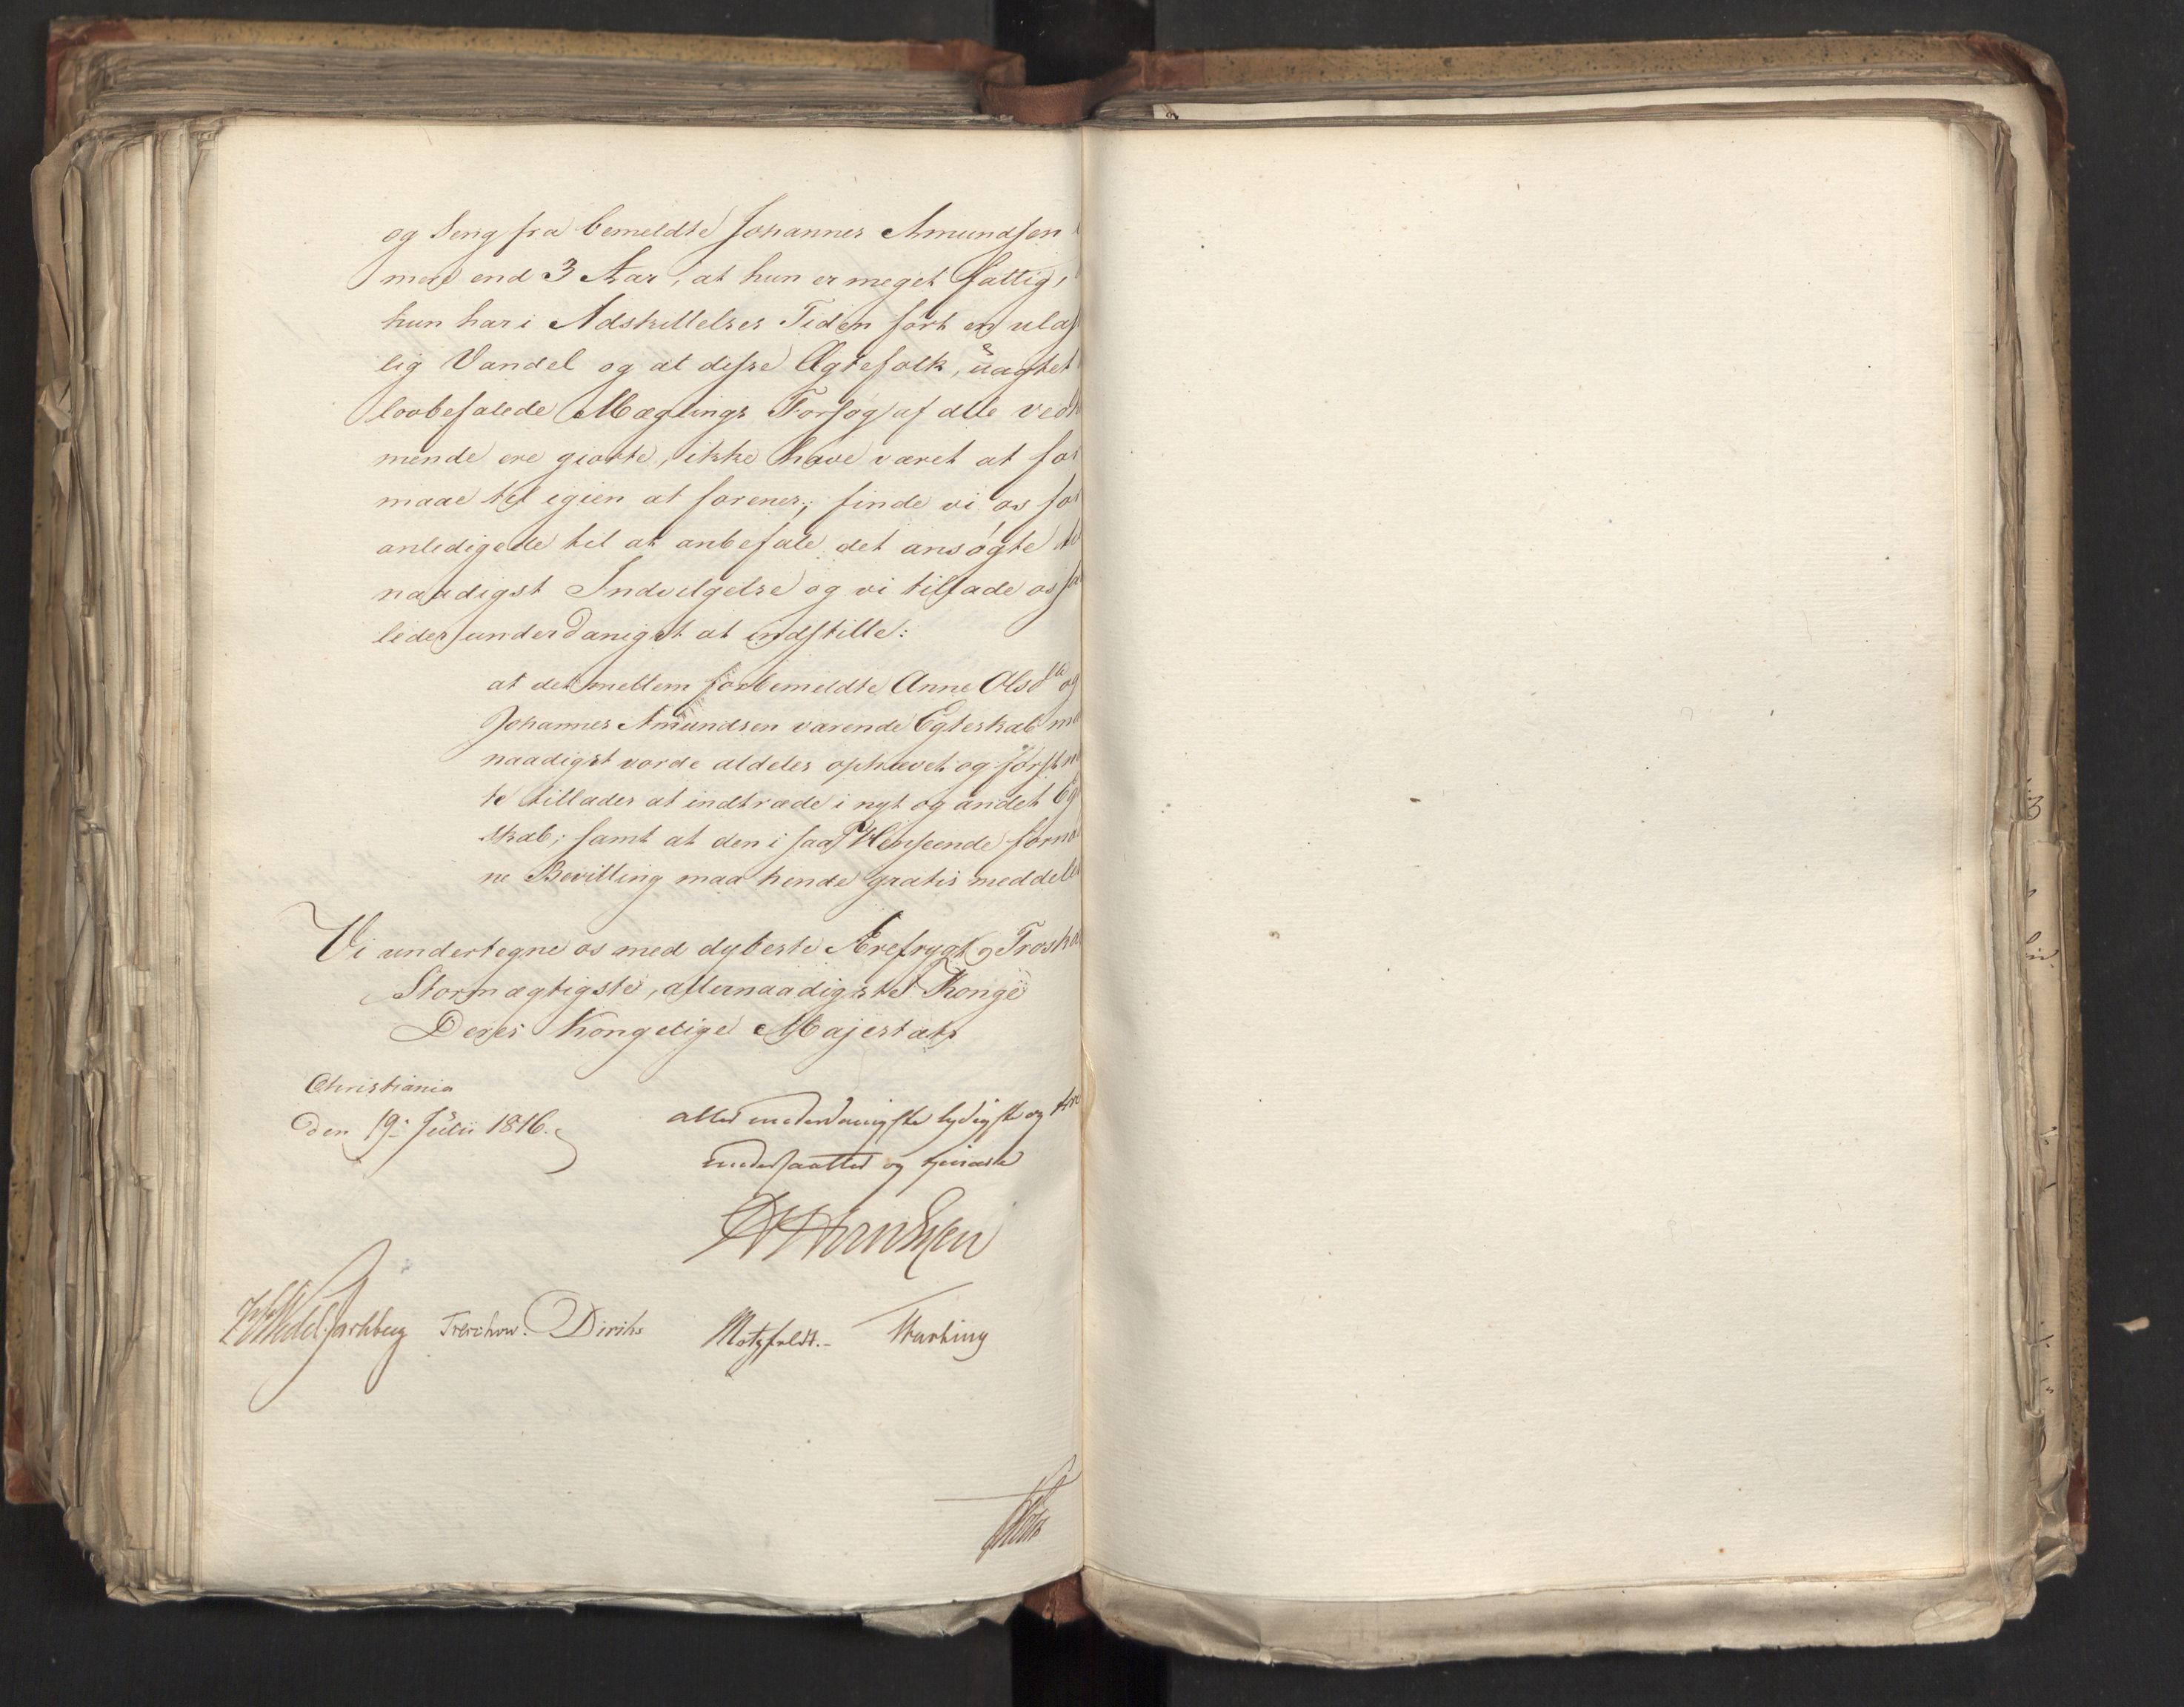 og Seng fra bemeldte Johannes Amundsen
mere end 3 Aar, at hun er meget fattig,
hun har i Adskillelses Tiden ført en ulas
lig Vandel og at disse Ægtefolk, uagtet
lovbefalede Mæglings Forsøg af alle vedk
mende ere giorte, ikke have været at for
maae til igien at forenes, finde vi os for
anledigede til at anbefale det ansøgte
naadigst Indvilgelse og vi tillade os saa
ledes underdanigst at indstille:
at det mellem forbemeldte Anne Olsd. og
Johannes Amundsen værende Egteskab maa
naadigst vorde aldeles ophævet og først
te tillades at indtræde i nyt og andet Eg
skab; samt at den i saa Henseende forno
ne Bevilling maa hende gratis meddeles
Vi undertegne os med dybeste Ærefrygt og Troska
Stormægtigste, allernaadigste Konge
Deres Kongelige Majestæts
Christiania
den 19. Julii 1816.
allerunderdanigste lydigste og tro
undersaatter og tienere
Wedel Jarlsberg Treschow. Diriks Motzfeldt.